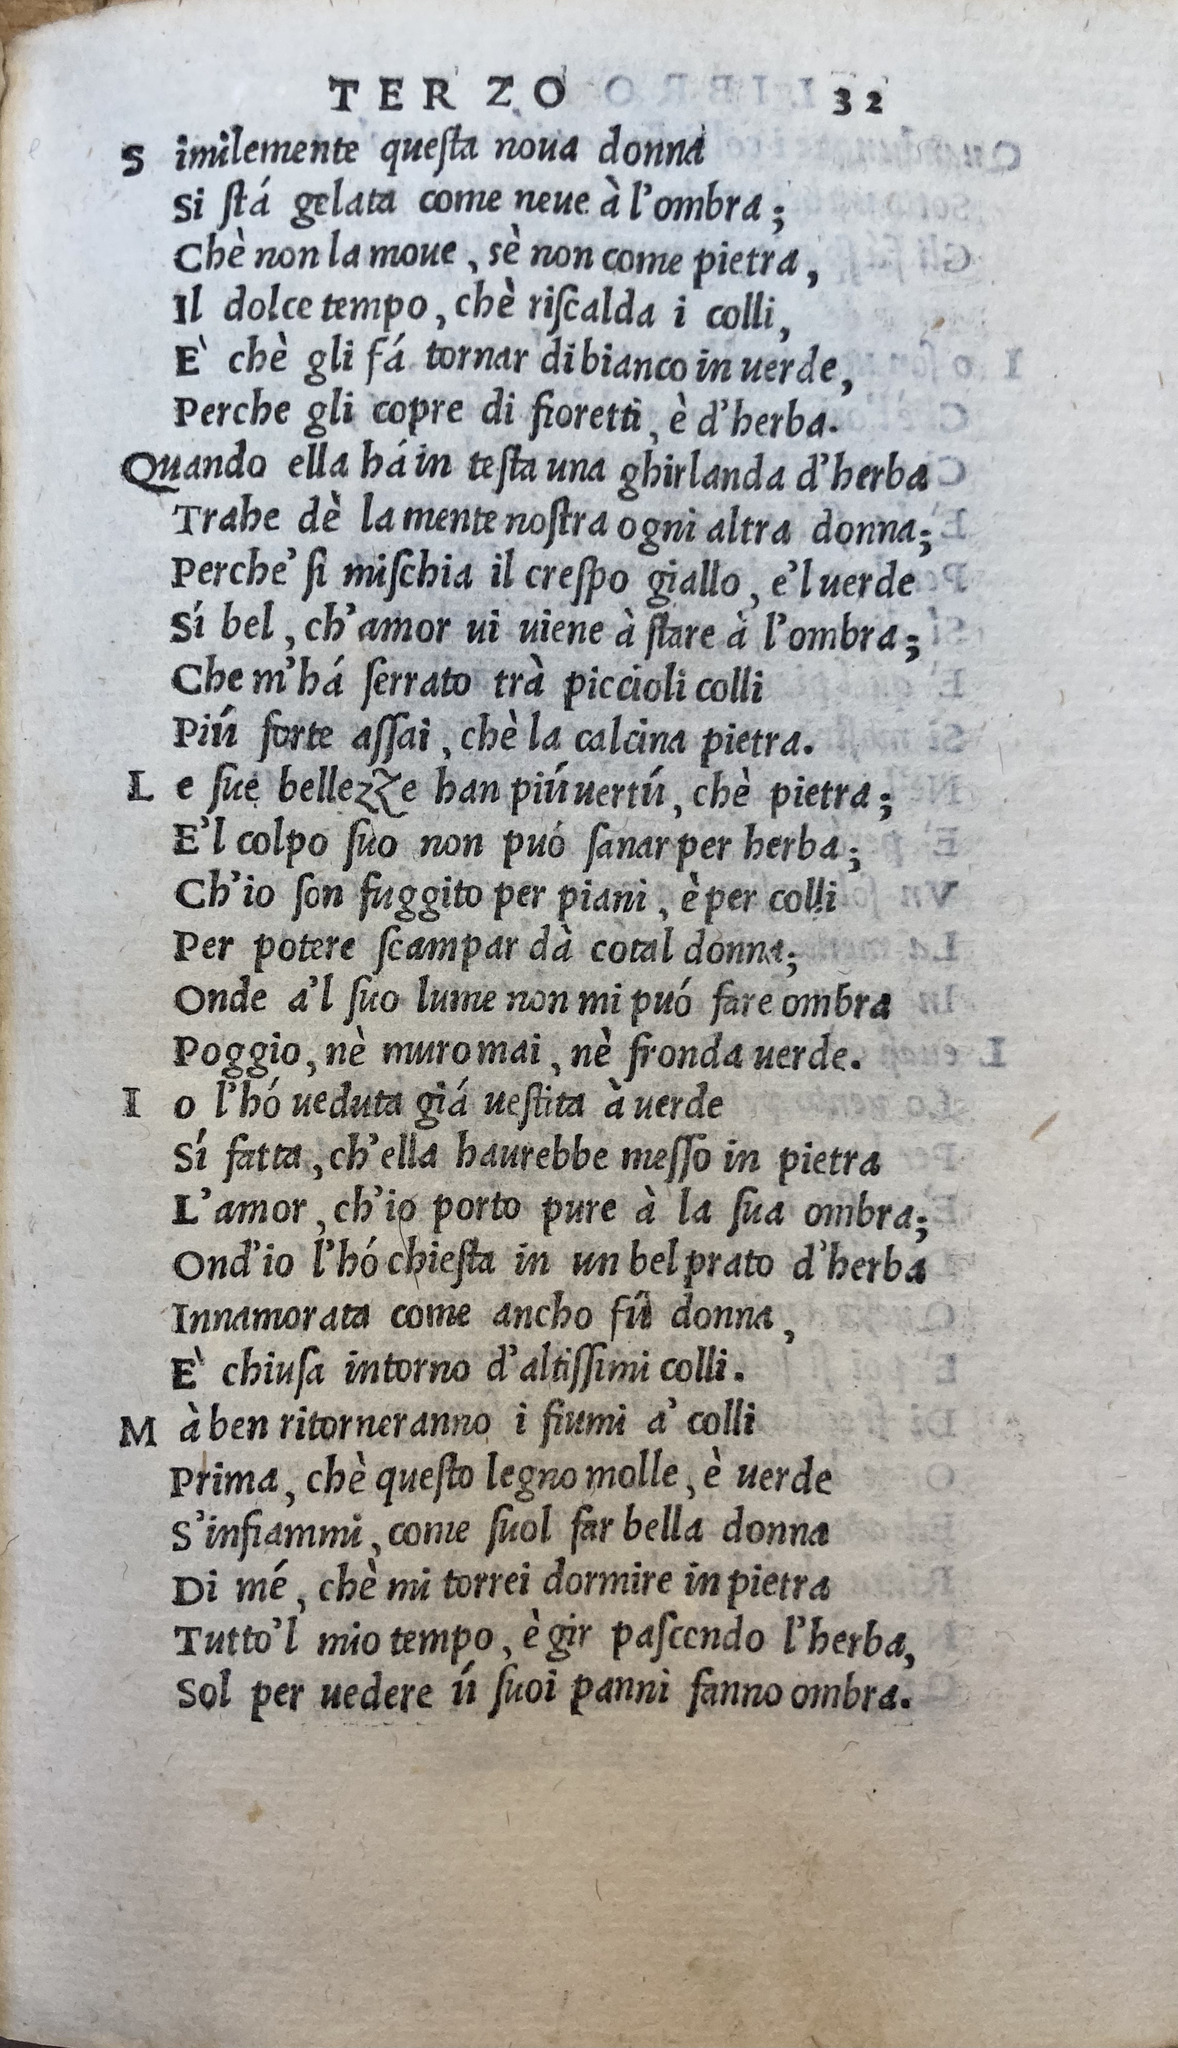 TERZO 32
Similemente queſta noua donna
Si ſtá gelata come neue à l'ombra;
Chè non la moue, sè non come pietra,
Il dolce tempo, chè riſcalda i colli,
E' chè gli fá tornar di bianco in uerde,
Perche gli copre di fioretti, è d'herba.
Quando ella há in teſta una ghirlanda d'herba
Trahe dè la mente noſtra ogni altra donna;
Perche' ſi miſchia il creſpo giallo, e'l uerde
Sí bel, ch'amor ui uiene à ſtare à l'ombra;
Che m'há ſerrato trà piccioli colli
Piú forte aſſai, chè la calcina pietra.
Le ſue bellezze han piú uertú, chè pietra;
E'l colpo ſuo non puó ſanar per herba;
Ch'io ſon fuggito per piani, è per colli
Per potere ſcampar dà cotal donna;
Onde a'l ſuo lume non mi puó fare ombra
Poggio, nè muro mai, nè fronda uerde.
Io l'hó ueduta giá ueſtita à uerde
Sí fatta, ch'ella haurebbe meſſo in pietra
L'amor, ch'io porto pure à la ſua ombra;
Ond'io l'hó chieſta in un bel prato d'herba
Innamorata come ancho fû donna,
E' chiuſa intorno d'altiſſimi colli.
Mà ben ritorneranno i fiumi a' colli
Prima, chè queſto legno molle, è uerde
S'infiammi, come ſuol far bella donna
Di mé, chè mi torrei dormire in pietra
Tutto'l mio tempo, è gir paſcendo l'herba,
Sol per uedere ú ſuoi panni fanno ombra.